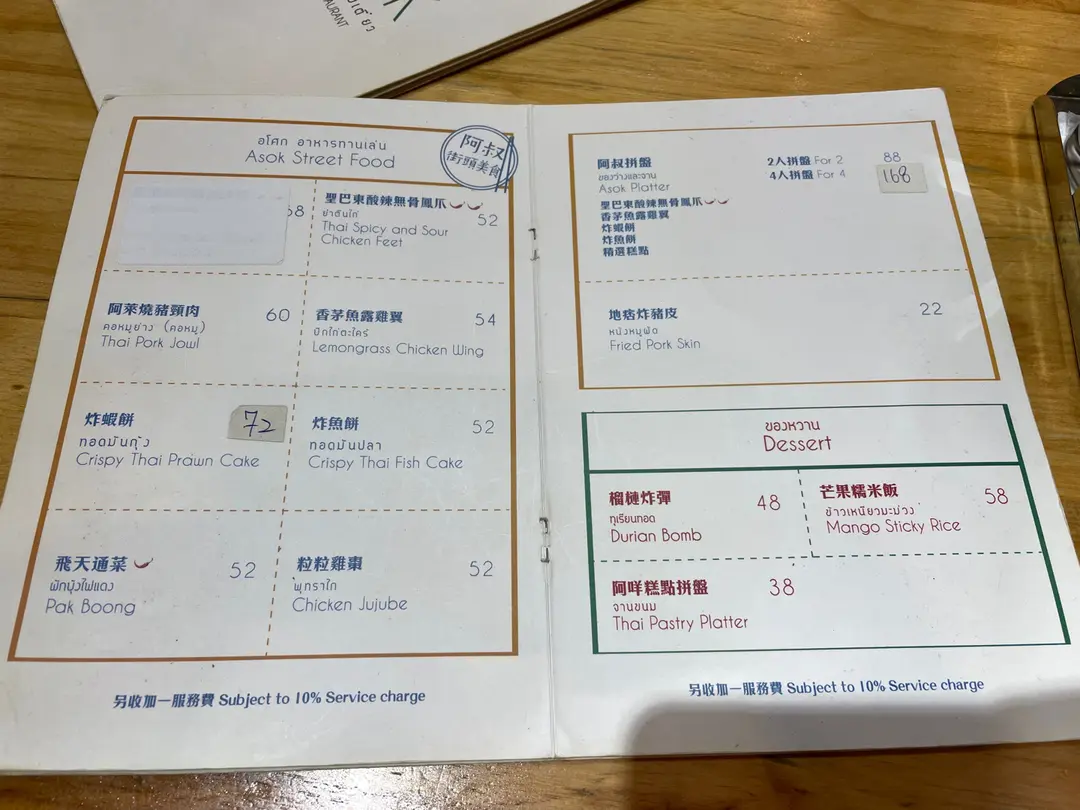 RESTAURANT
อโศก อาหารทานเล่น
Asok Street Food
阿叔
街頭美食
聖巴東酸辣無骨鳳爪
ยำตีนไก่
Thai Spicy and Sour
Chicken Feet
52
阿萊燒豬頸肉
คอหมูย่าง (คอหมู)
Thai Pork Jowl
60
香茅魚露雞翼
ปีกไก่ตะไคร้
Lemongrass Chicken Wing
54
炸蝦餅
ทอดมันกุ้ง
Crispy Thai Prawn Cake
72
炸魚餅
ทอดมันปลา
Crispy Thai Fish Cake
52
飛天通菜
ผักบุ้งไฟแดง
Pak Boong
52
粒粒雞棗
พุทราไก่
Chicken Jujube
52
另收加一服務費 Subject to 10% Service charge
阿叔拼盤
ของว่างและจาน
Asok Platter
2人拼盤 For 2 88
4人拼盤 For 4 168
聖巴東酸辣無骨鳳爪
香茅魚露雞翼
炸蝦餅
炸魚餅
精選糕點
地痞炸豬皮
หนังหมูผัด
Fried Pork Skin
22
ของหวาน
Dessert
榴槤炸彈
ทุเรียนทอด
Durian Bomb
48
芒果糯米飯
ข้าวเหนียวมะม่วง
Mango Sticky Rice
58
阿咩糕點拼盤
จานขนม
Thai Pastry Platter
38
另收加一服務費 Subject to 10% Service charge